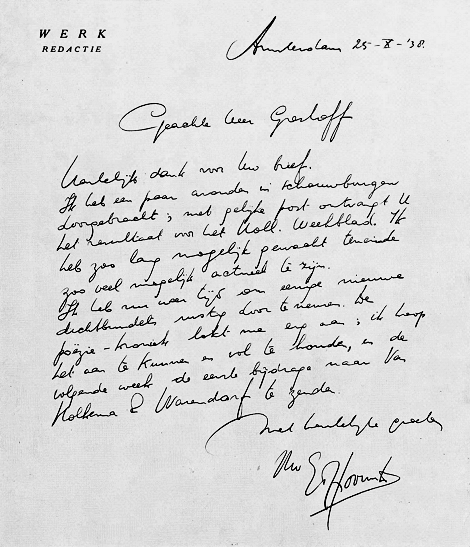 WERK
REDACTIE
Amsterdam 25-X-'38.
Geachte Heer Greshoff
Hartelijk dank voor Uw brief.
Ik heb een paar avonden in schouwburgen
doorgebracht; met gelijke post ontvangt U
het resultaat voor het Holl. Weekblad. Ik
heb zoo lang mogelijk gewacht teneinde
zoo veel mogelijk actueel te zijn.
Ik heb nu weer tijd om eenige nieuwe
dichtbundels rustig door te nemen. De
poëzie-kroniek lokt me erg aan; ik hoop
het aan te kunnen en vol te houden, en de
volgende week de eerste bijdrage naar Van
Holkema & Warendorf te zenden.
Met hartelijke groeten
Uw Ed. Hoornik